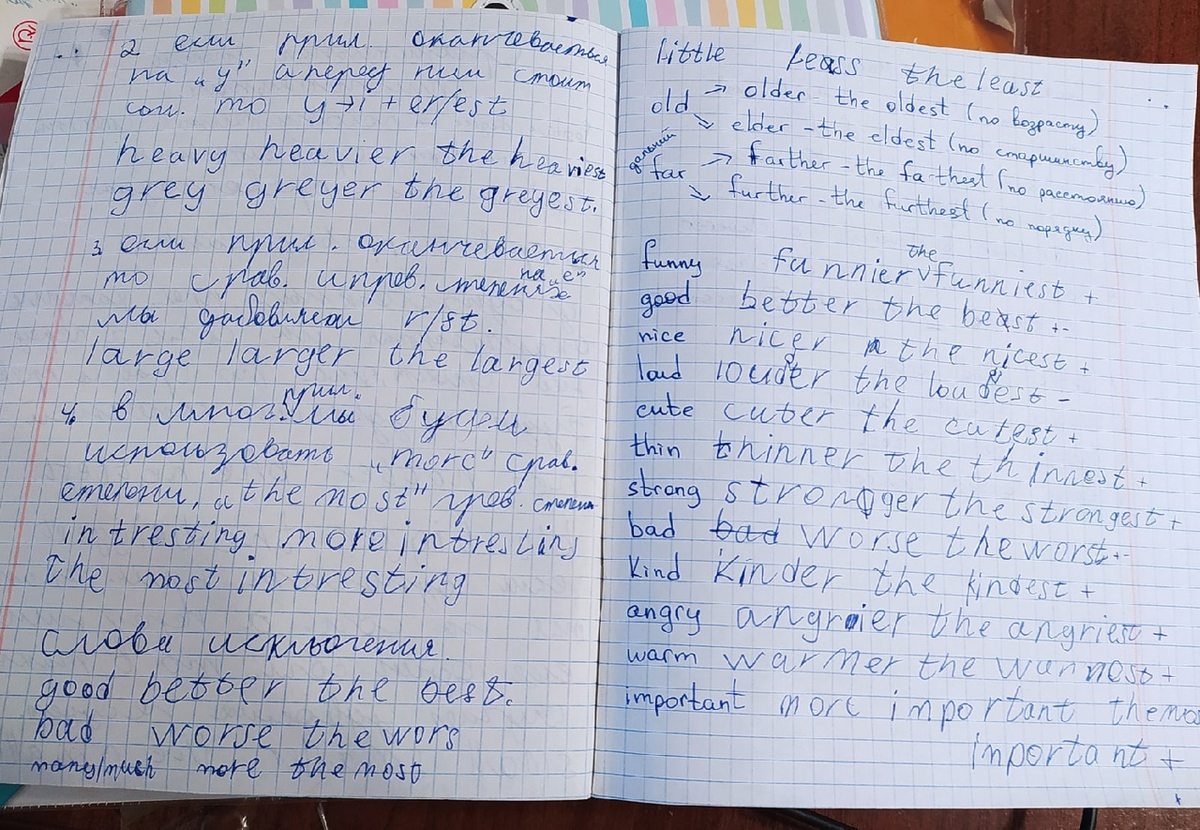 2 если прил. оканчевається
на „y" а перед ним стоит
сог. то y→i + er/est
heavy heavier the heaviest
grey greyer the greyest.
3 если прил. оканчевается
на „e"
то срав. и прев. степенях
мы добовляем r/st.
large larger the largest
прил.
4. в мног. мы будем
использовать „more" срав.
степени, а „the most" прев. степени
intresting more intresting
the most intresting
слова исключения.
good better the best.
bad worse the wors
many/much more the most
little less the least
old → older - the oldest (по возрасту)
↘ elder - the eldest (по старшинству)
далекий
far → farther - the farthest (по расстоянию)
↘ further - the furthest (по порядку)
the
funny funnier ∨ funniest +
good better the beast +-
nice nicer the nicest +
loud louder the loudest -
cute cuter the cutest +
thin thinner the thinnest +
strong stronger the strongest +
bad bad worse the worst +-
kind kinder the kindest +
angry angrier the angriest +
warm warmer the warmost +
important more important the mos
important +